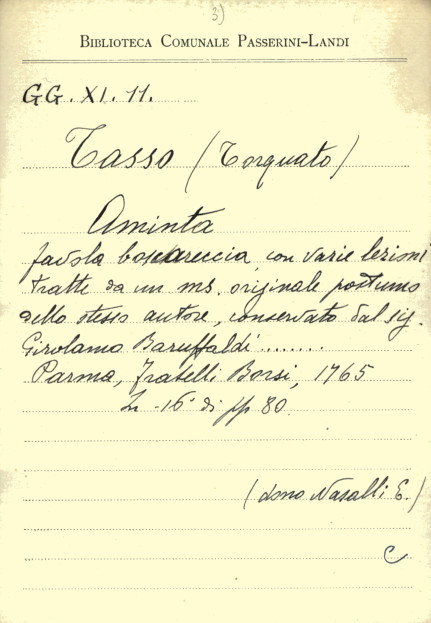 3)
BIBLIOTECA COMUNALE PASSERINI-LANDI
GG. XI. 11.
Tasso (Torquato)
Aminta
favola boschareccia, con varie lezioni
tratte da un ms. originale postumo
dello stesso autore, conservato dal sig.
Girolamo Baruffaldi ........
Parma, Fratelli Borsi, 1765
In -16° di pp 80.
(dono Nasalli E.)
C